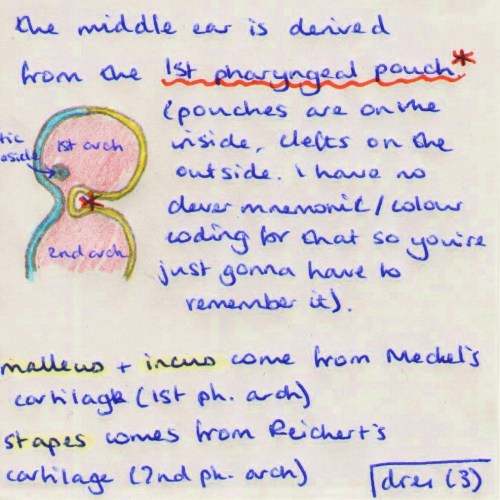 the middle ear is derived
from the 1st pharyngeal pouch.*
(pouches are on the
inside, clefts on the
outside. I have no
clever mnemonic/colour
coding for that so you're
just gonna have to
remember it).
1st arch
2nd arch
malleus + incus come from Meckel's
cartilage (1st ph. arch)
stapes comes from Reichert's
cartilage (2nd ph. arch)